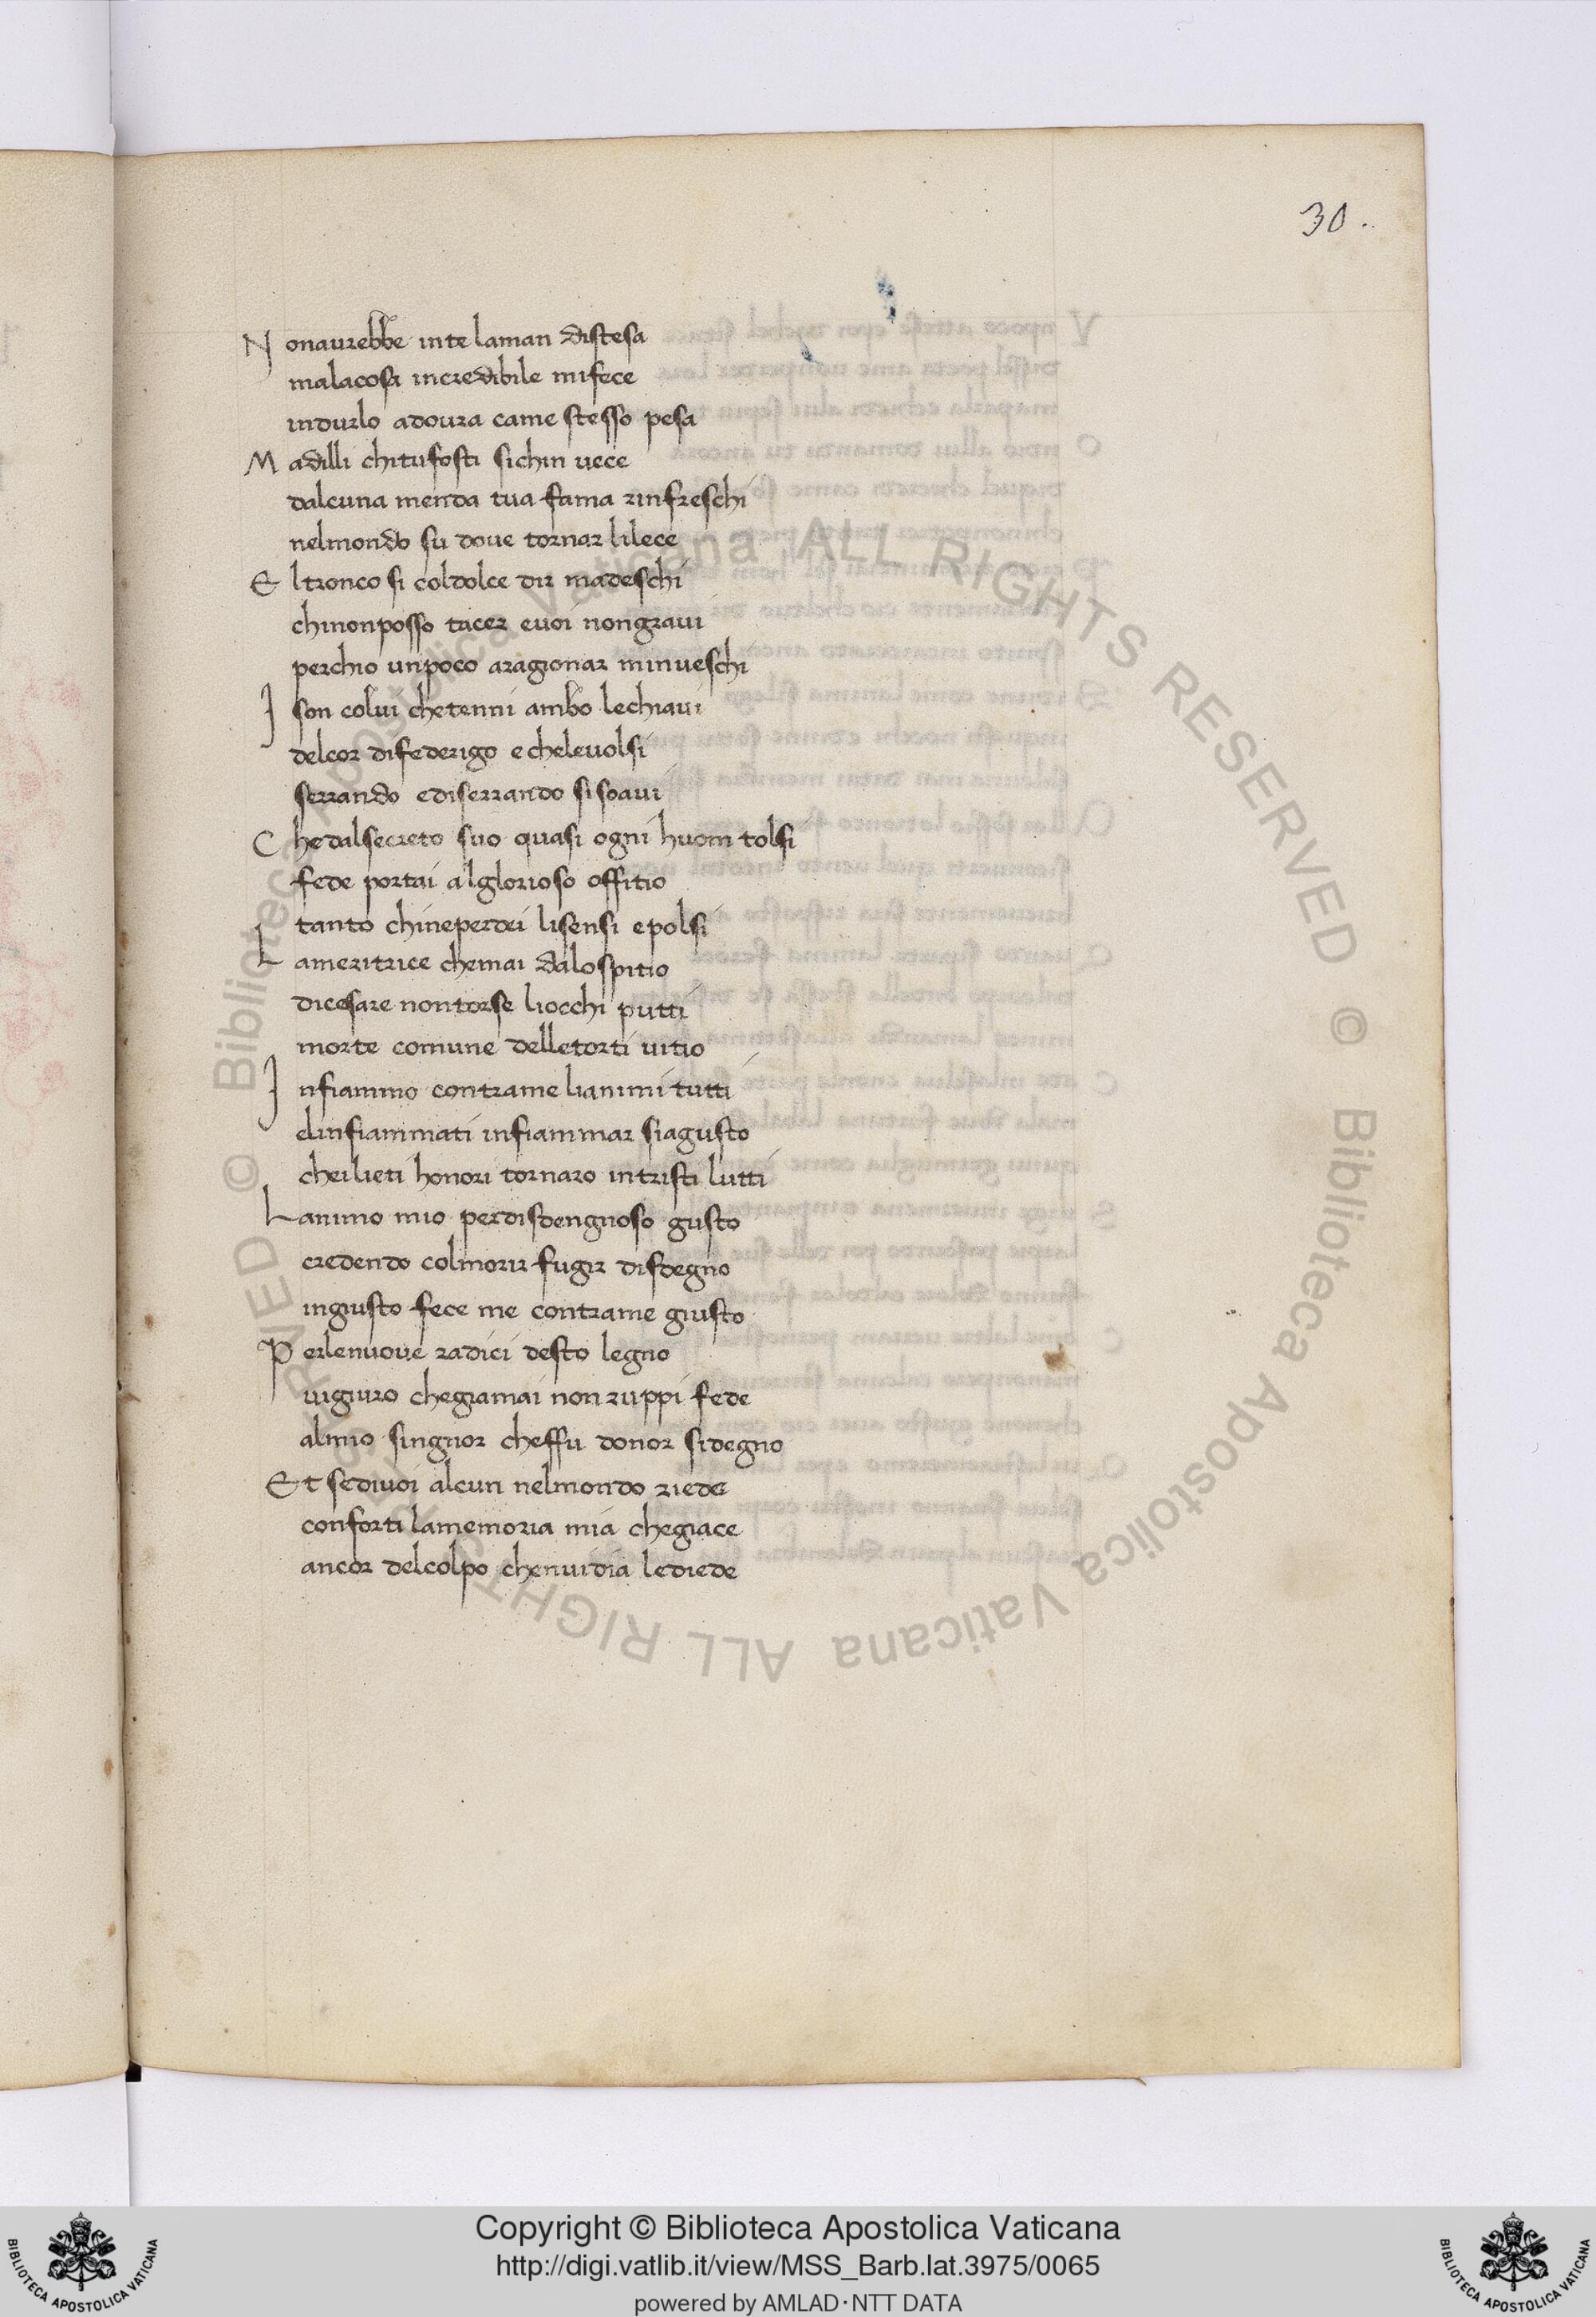 30.
Nonaurebbe inte laman distesa
malacosa incredibile mifece
indurlo adoura came stesso pesa
Madilli chitufosti sichin uece
dalcuna menda tua fama rinfreschi
nelmondo su doue tornar lilece
Eltronco si coldolce dir madeschi
chinonposso tacer euoi nongraui
perchio unpoco aragionar minueschi
Ison colui chetenni ambo lechiaui
delcor difederigo e cheleuolsi
serrando ediserrando si soaui
Chedalsecreto suo quasi ogni huom tolsi
fede portai alglorioso offitio
tanto chineperdei lisensi epolsi
Lameritrice chemai dalospitio
dicesare nontorse liocchi putti
morte comune delletorti uitio
Infiammo contrame lianimi tutti
elinfiammati infiammar siagusto
cheilieti honori tornaro intristi lutti
Lanimo mio perdisdengnoso gusto
credendo colmorir fugir disdegno
ingiusto fece me contrame giusto
Perlenuoue radici desto legno
uigiuro chegiamai non ruppi fede
almio singnor cheffu donor sidegno
Et sediuoi alcun nelmondo riede
conforti lamemoria mia chegiace
ancor delcolpo chenuidia lediede
© Biblioteca Apostolica Vaticana ALL RIGHTS RESERVED © Biblioteca Apostolica Vaticana ALL RIGHTS RESERVED
Copyright © Biblioteca Apostolica Vaticana
http://digi.vatlib.it/view/MSS_Barb.lat.3975/0065
powered by AMLAD·NTT DATA
BIBLIOTECA APOSTOLICA VATICANA
BIBLIOTECA APOSTOLICA VATICANA